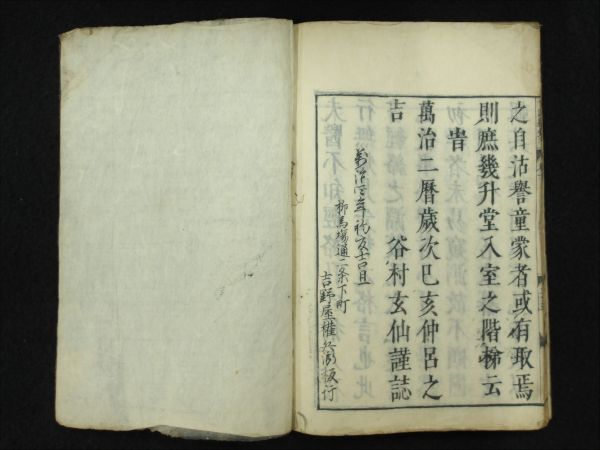 之自沽譽童蒙者或有取焉
則庶幾升堂入室之階梯云
旹
萬治二曆歲次己亥仲呂之
吉　　谷村玄仙謹誌
柳馬場通二条下町
吉野屋權兵衛板行